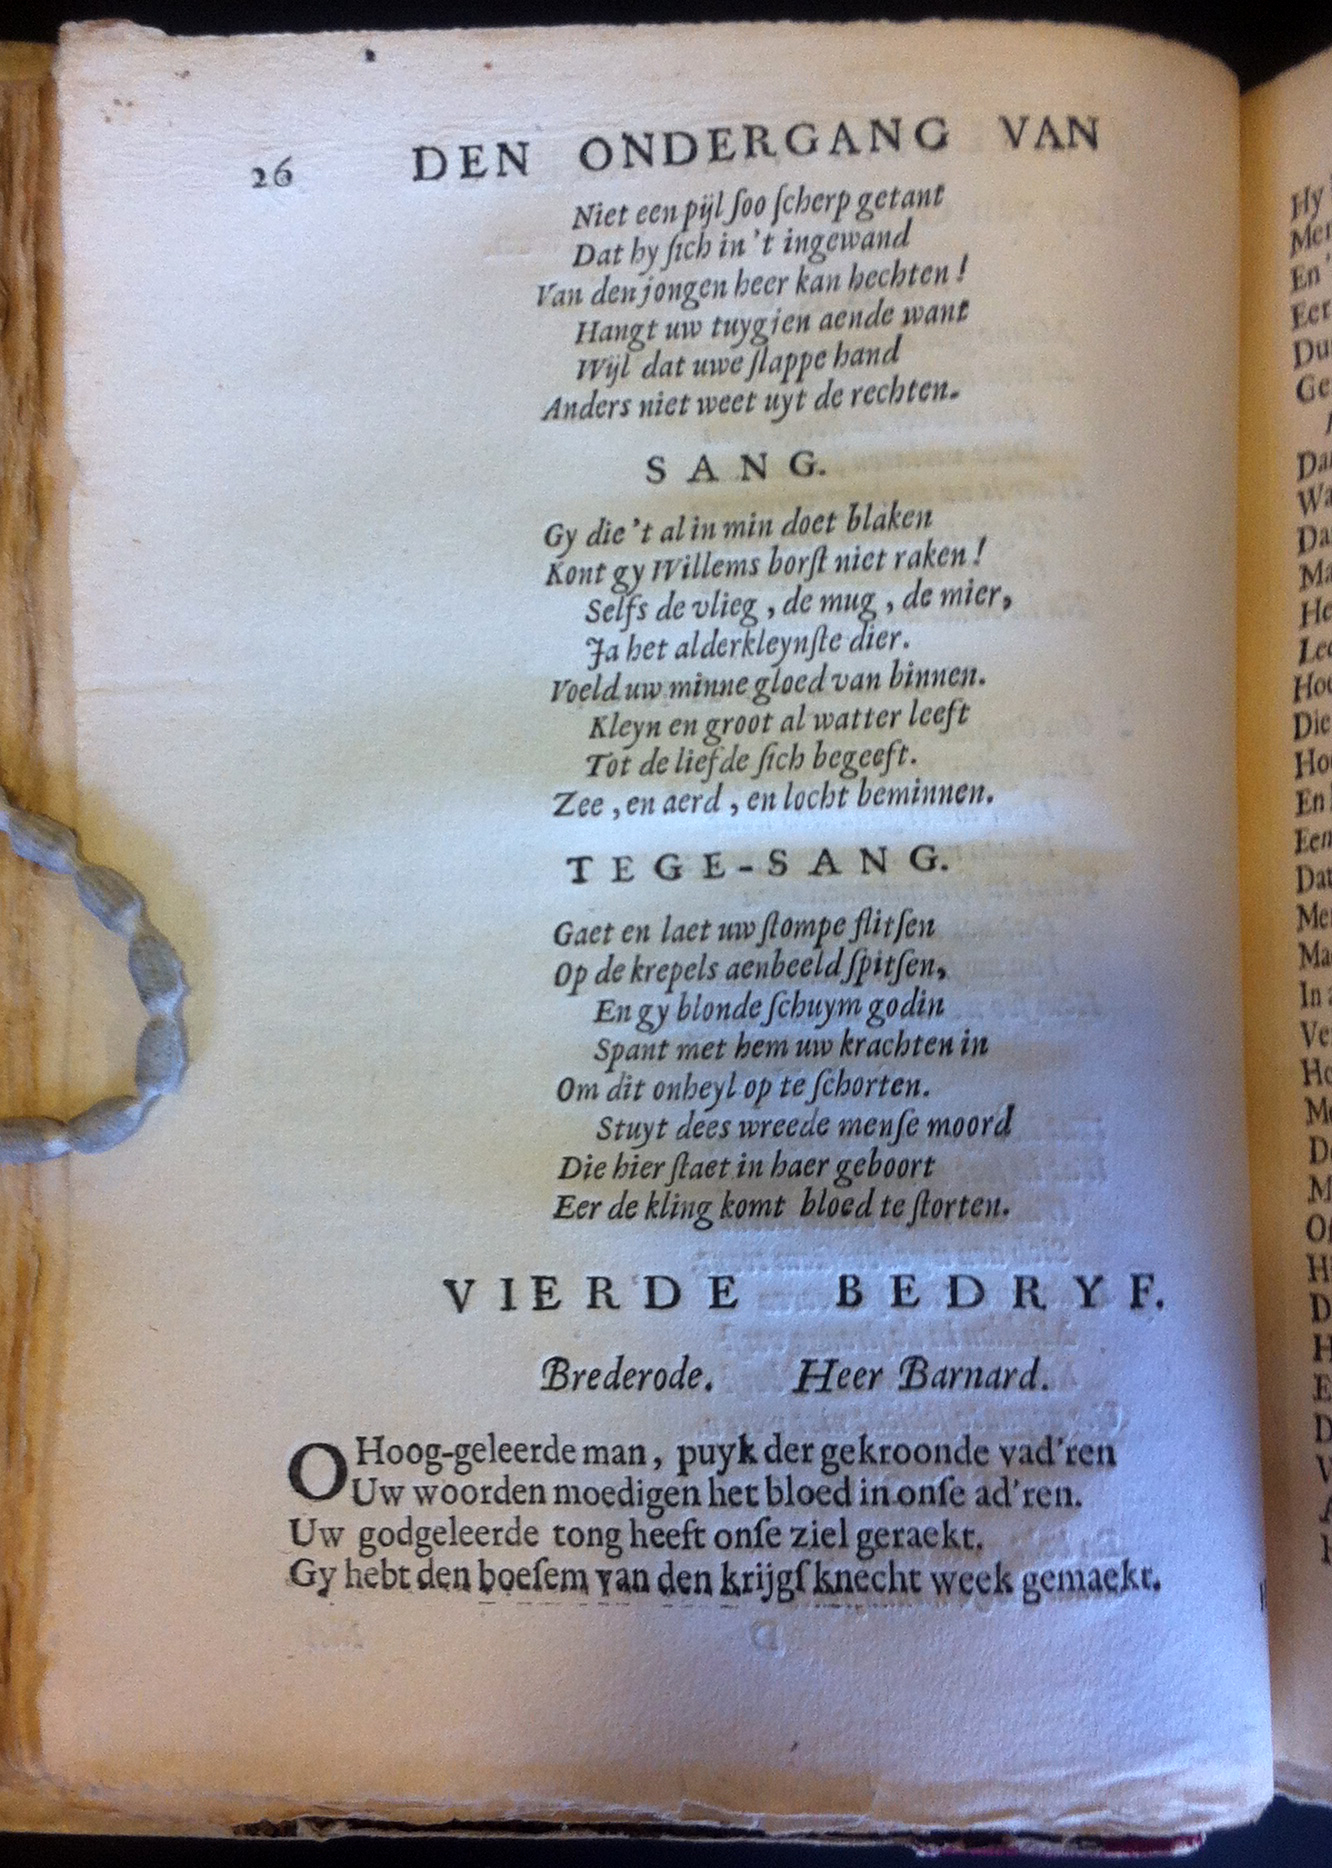 26 DEN ONDERGANG VAN
Niet een pijl ſoo ſcherp getant
Dat hy ſich in 't ingewand
Van den jongen heer kan hechten!
Hangt uw tuygjen aende want
Wijl dat uwe ſlappe hand
Anders niet weet uyt de rechten.
SANG.
Gy die 't al in min doet blaken
Kont gy Willems borſt niet raken!
Selfs de vlieg, de mug, de mier,
Ja het alderkleynſte dier.
Voeld uw minne gloed van binnen.
Kleyn en groot al watter leeft
Tot de liefde ſich begeeft.
Zee, en aerd, en locht beminnen.
TEGE-SANG.
Gaet en laet uw ſtompe flitſen
Op de krepels aenbeeld ſpitſen,
En gy blonde ſchuym godin
Spant met hem uw krachten in
Om dit onheyl op te ſchorten.
Stuyt dees wreede menſe moord
Die hier ſtaet in haer geboort
Eer de kling komt bloed te ſtorten.
VIERDE BEDRYF.
Brederode. Heer Barnard.
O Hoog-geleerde man, puyk der gekroonde vad'ren
Uw woorden moedigen het bloed in onſe ad'ren.
Uw godgeleerde tong heeft onſe ziel geraekt.
Gy hebt den boeſem van den krijgſknecht week gemaekt.
Hy
En
Dat
Die
En
Dat